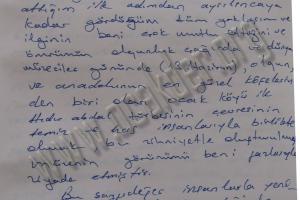 attığım ilk adımdan ayrılıncaya
kadar gördüğüm tüm yaklaşım ve
ilginin beni çok mutlu ettiğini ve
ömrümün olgunluk çağında dünya
gününde olgun,
ve anadolunun en güzel köşelerin
den biri olan ocak köyü ile
Hıdır Abdal türbesinin çevresinin
temiz ve insanlarıyla birlikte
olumlu bir zihniyetle oluşturulmuş
görünümü beni fazlasıyla
ziyade etmiştir.
Bu insanlarla yeni